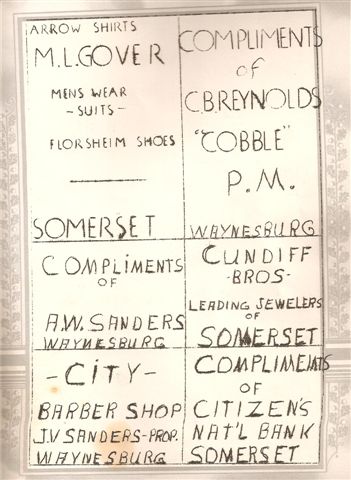 ARROW SHIRTS
M.L. GOVER
MENS WEAR
- SUITS -
FLORSHEIM SHOES
SOMERSET
COMPLIMENTS
of
C.B. REYNOLDS
"COBBLE"
P.M.
WAYNESBURG
COMPLIMENTS
OF
A.W. SANDERS
WAYNESBURG
CUNDIFF
-BROS-
LEADING JEWELERS
OF
SOMERSET
- CITY -
BARBER SHOP
J.V SANDERS-PROP.
WAYNESBURG
COMPLIMENTS
OF
CITIZEN'S
NAT'L BANK
SOMERSET